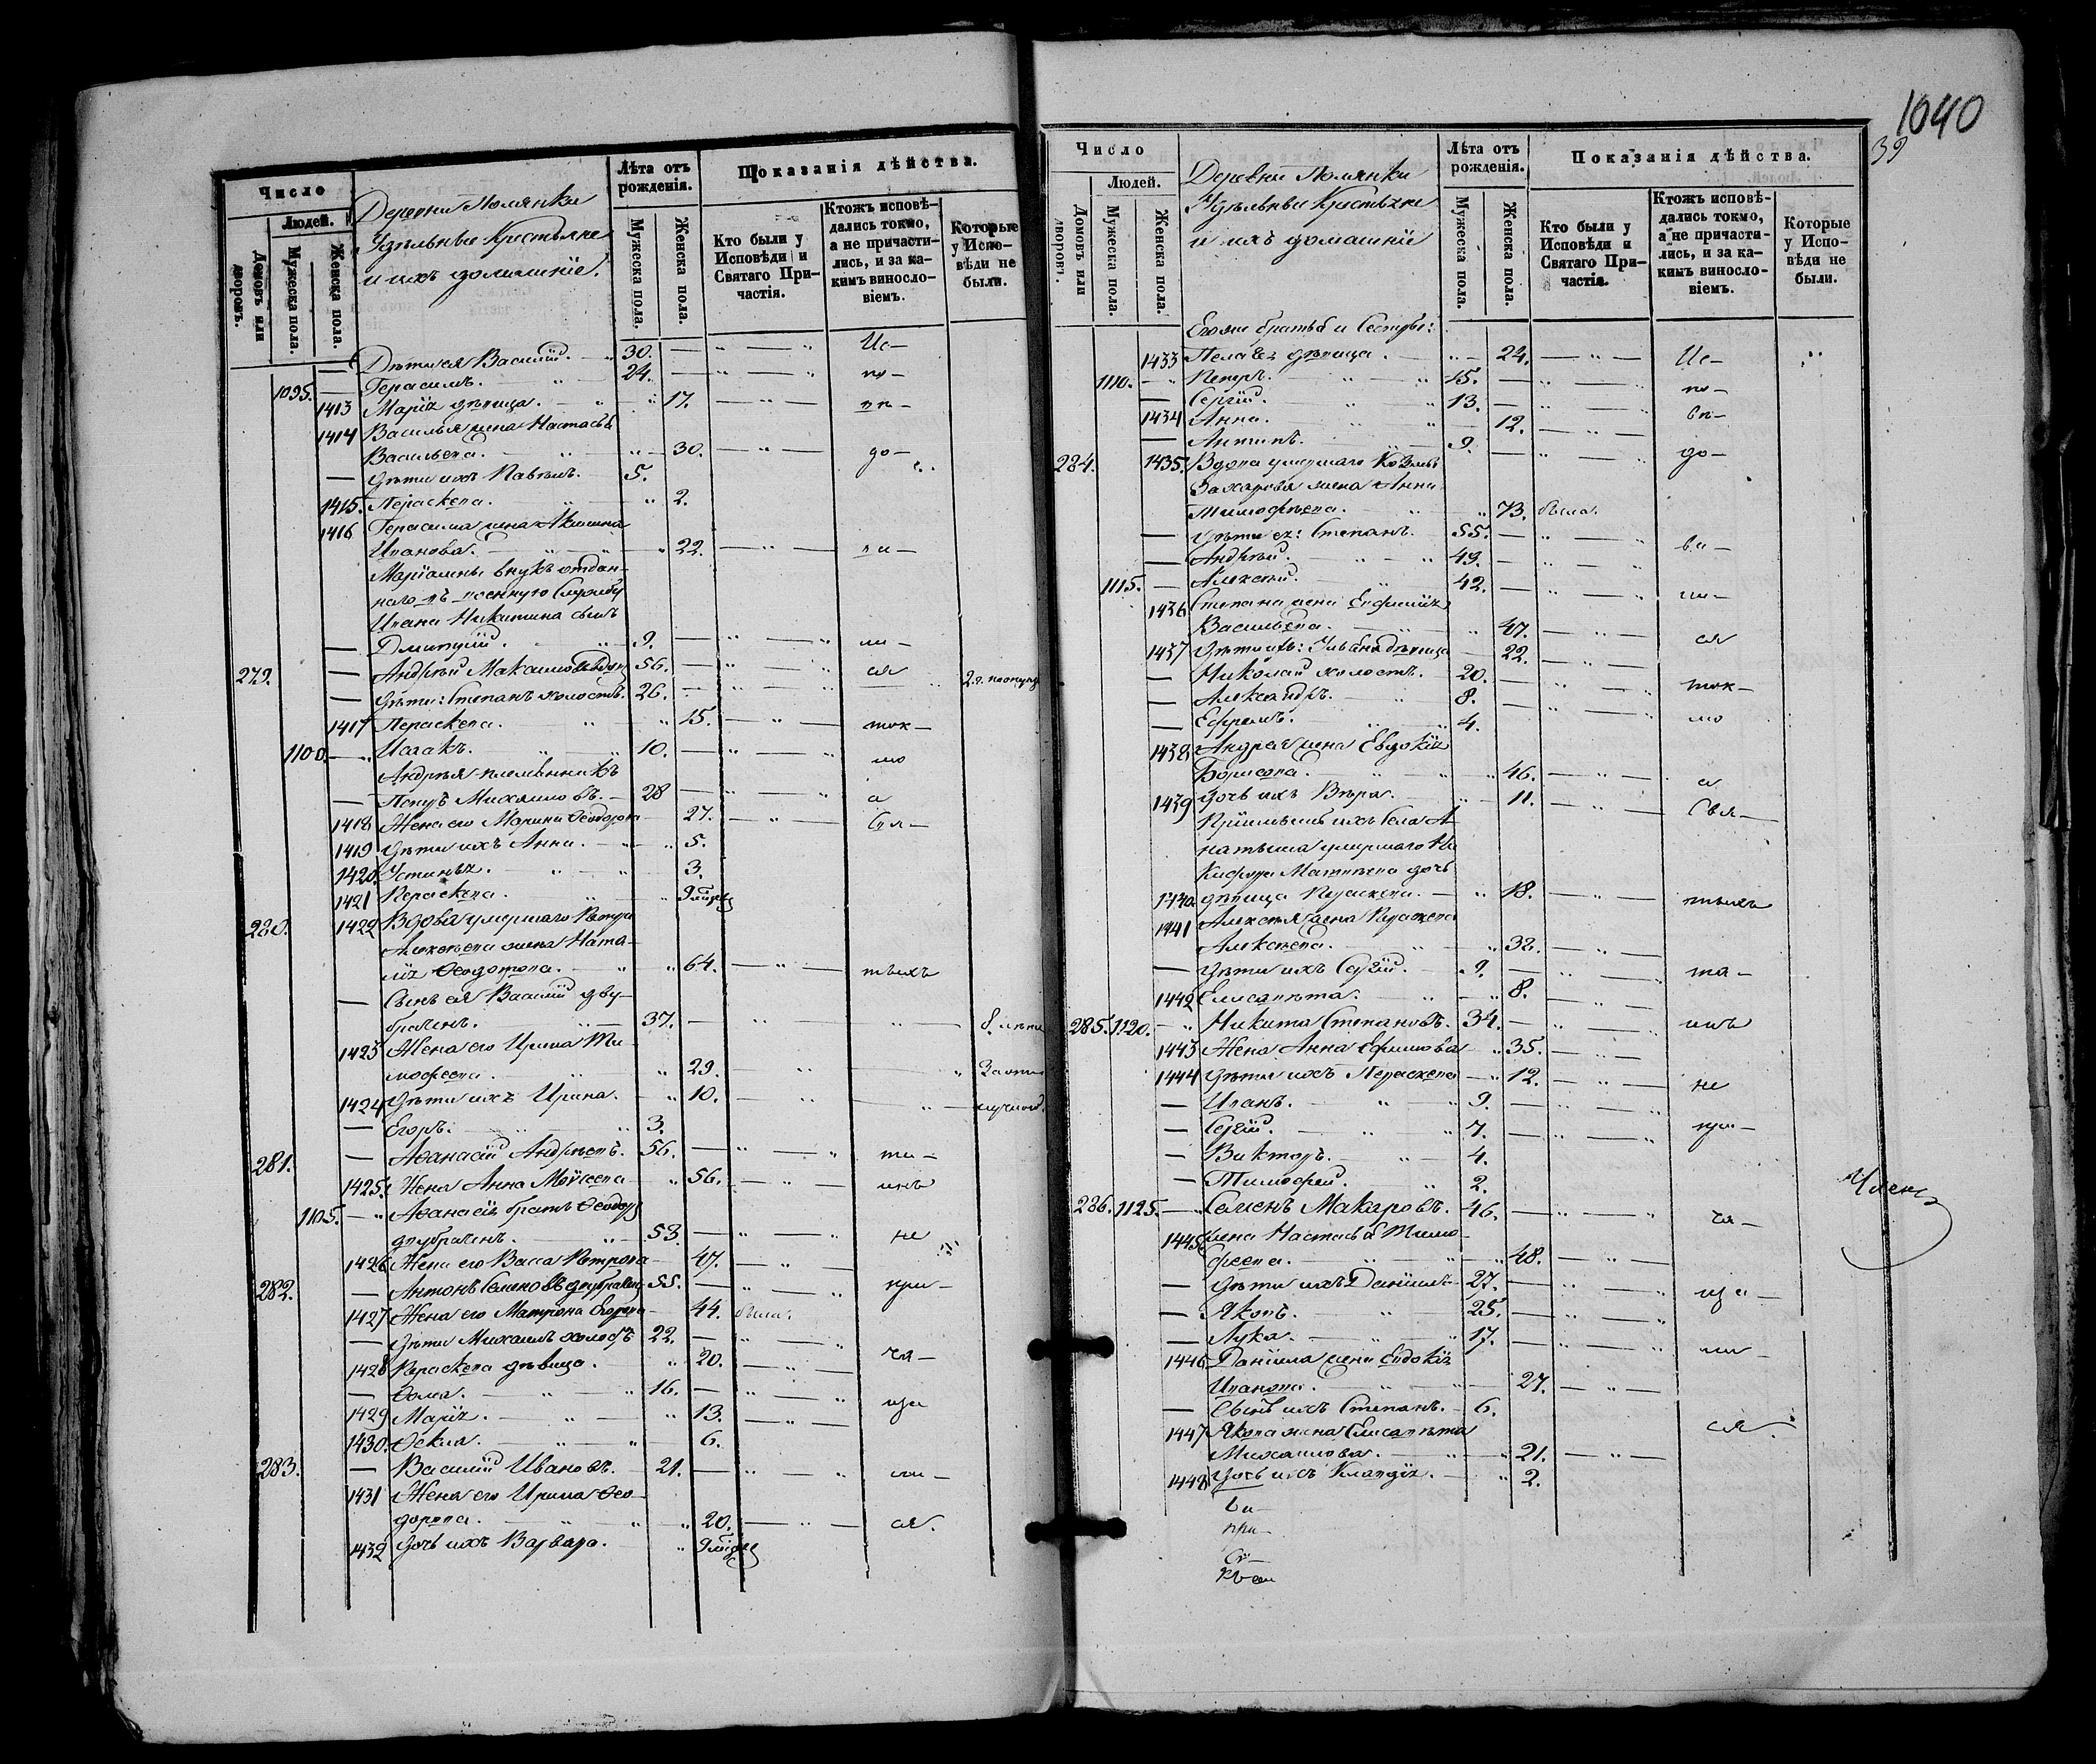 Число
Людей.
Домовъ или дворовъ.
Мужеска пола.
Женска пола.
Деревни Ломянки
Удѣльные Крестьяне
и ихъ домашніе.
Лѣта отъ рожденія.
Мужеска пола.
Женска пола.
Показанія дѣйства.
Кто были у Исповѣди и Святаго Причастія.
Ктожъ исповѣдались токмо, а не причастились, и за какимъ винословіемъ.
Которые у Исповѣди не были.
— Дѣти ея Василій. 30. Ис—
1095. — Герасимъ. 24. по—
1413 Марія дѣвица. 17.
1414 Василья жена Настасья
Васильева. 30. до—
— Дѣти ихъ Павелъ. 5.
1415. Пераскева. 2.
1416 Герасима жена Акилина
Иванова. 22.
Маріамны внукъ отдан-
наго въ военную службу
Ивана Никитина сынъ
— Дмитрій. 9. ли—
279. — Андрей Максимовъ вдов 56. ся
— Дѣти: Степанъ холостъ. 26.
1417 Пераскева. 15. ток—
1100. — Исаакъ. 10. мо
Андрея племянникъ
— Петръ Михайловъ. 28 а
1418 Жена его Марина Ѳеодорова 27.
1419 Дѣти ихъ Анна. 5.
1420. Устинья. 3.
1421 Пераскева.
280. 1422 Вдова умершаго Петра
Алексѣева жена Ната-
лія Ѳеодотова. 64. тыхъ
— Сынъ ея Василій дву-
браченъ. 37.
1423 Жена его Ирина Ти-
мофеева. 29.
1424 Дѣти ихъ Ирина. 10.
— Егоръ. 3.
281. — Аѳанасій Андреевъ. 56. та—
1425. Жена Анна Моѵсеева 56. инъ
1105. — Аѳанасія братъ Ѳеодоръ
двубраченъ. 53. не
1426 Жена его Васса Петрова 47.
282. — Антонъ Семеновъ двубрачен 55. при—
1427 Жена его Матрона Егорова 44. была.
— Дѣти Михаилъ холостъ 22.
1428 Пераскева дѣвица. 20. ча—
— Ѳома. 16.
1429 Марія. 13. ща
1430. Ѳекла. 6.
283. — Василій Ивановъ. 21. ли—
1431 Жена его Ирина Ѳео-
дорова. 20. ся.
1432 Дочь ихъ Варвара.
1040
39
Число
Людей.
Домовъ или дворовъ.
Мужеска пола.
Женска пола.
Деревни Ломянки
Удѣльные Крестьяне
и ихъ домашніе
Лѣта отъ рожденія.
Мужеска пола.
Женска пола.
Показанія дѣйства.
Кто были у Исповѣди и Святаго Причастія.
Ктожъ исповѣдались токмо, а не причастились, и за какимъ винословіемъ.
Которые у Исповѣди не были.
Его же братья и Сестры:
1433 Пелагея дѣвица. 24. Ис—
1110. — Петръ. 15. по—
— Сергій. 13.
1434 Анна. 12.
— Антипъ. 9. до—
284. 1435. Вдова умершаго Козьмы
Захарова жена Анна
Тимофѣева. 73. была.
— Дѣти ея: Степанъ. 55.
— Андрей. 49.
1115. — Алексѣй. 42. ли—
1436 Степана жена Евфимія
Васильева. 47. ся
1437 Дѣти ихъ: Ульяна дѣвица 22.
— Николай холостъ. 20. ток—
— Александръ. 8.
— Ефремъ. 4. мо
1438 Андрея жена Евдокія
Борисова. 46. а
1439 Дочь ихъ Вѣра. 11.
Пріемышъ ихъ
умершаго Ни
Кифора Матвѣева дочь
1440 дѣвица Пераскева. 18. тыхъ
1441 Алексѣя жена Пераскева
Алексѣева. 32.
— Дѣти ихъ Сергій. 9. та—
1442 Елисавета. 8.
285. 1120. — Никита Степановъ. 34. инъ
1443 Жена Анна Ефимова 35.
1444 Дѣти ихъ Пераскева 12. не
— Иванъ. 9.
— Сергій. 7. при—
— Викторъ. 4.
— Тимофей. 2.
286. 1125. — Семенъ Макаровъ. 46. ча—
1445 жена Настасья Тимо-
феева. 48.
— Дѣти ихъ Даніилъ 27. ща—
— Яковъ. 25.
— Лука. 17. ли—
1446 Даніила жена Евдокія
Иванова. 27.
— Сынъ ихъ Степанъ. 6. ся.
1447 Якова жена Елисавета
Михайлова. 21.
1448 Дочь ихъ Клавдія. 2.
при—
Член